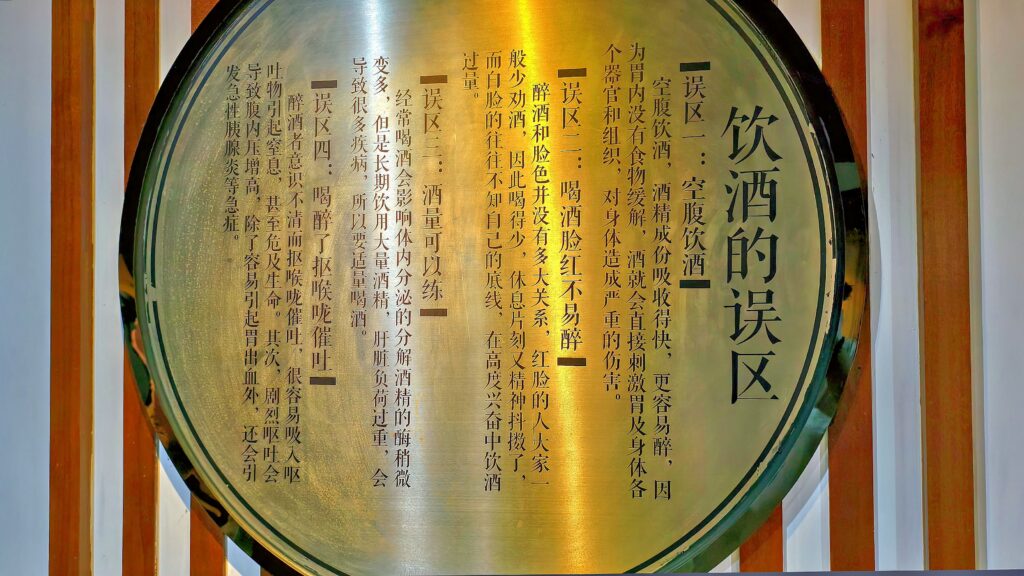 饮酒的误区
误区一：空腹饮酒
空腹饮酒，酒精成份吸收得快，更容易醉，因
为胃内没有食物缓解，酒就会直接刺激胃及身体各
个器官和组织，对身体造成严重的伤害。
误区二：喝酒脸红不易醉
醉酒和脸色并没有多大关系，红脸的人大家一
般少劝酒，因此喝得少，休息片刻又精神抖擞了，
而白脸的往往不知自己的底线，在高度兴奋中饮酒
过量。
误区三：酒量可以练
经常喝酒会影响体内分泌的分解酒精的酶稍微
变多，但是长期饮用大量酒精，肝脏负荷过重，会
导致很多疾病，所以要适量喝酒。
误区四：喝醉了抠喉咙催吐
醉酒者意识不清而抠喉咙催吐，很容易吸入呕
吐物引起窒息，甚至危及生命。其次，剧烈呕吐会
导致腹内压增高，除了容易引起胃出血外，还会引
发急性胰腺炎等急症。